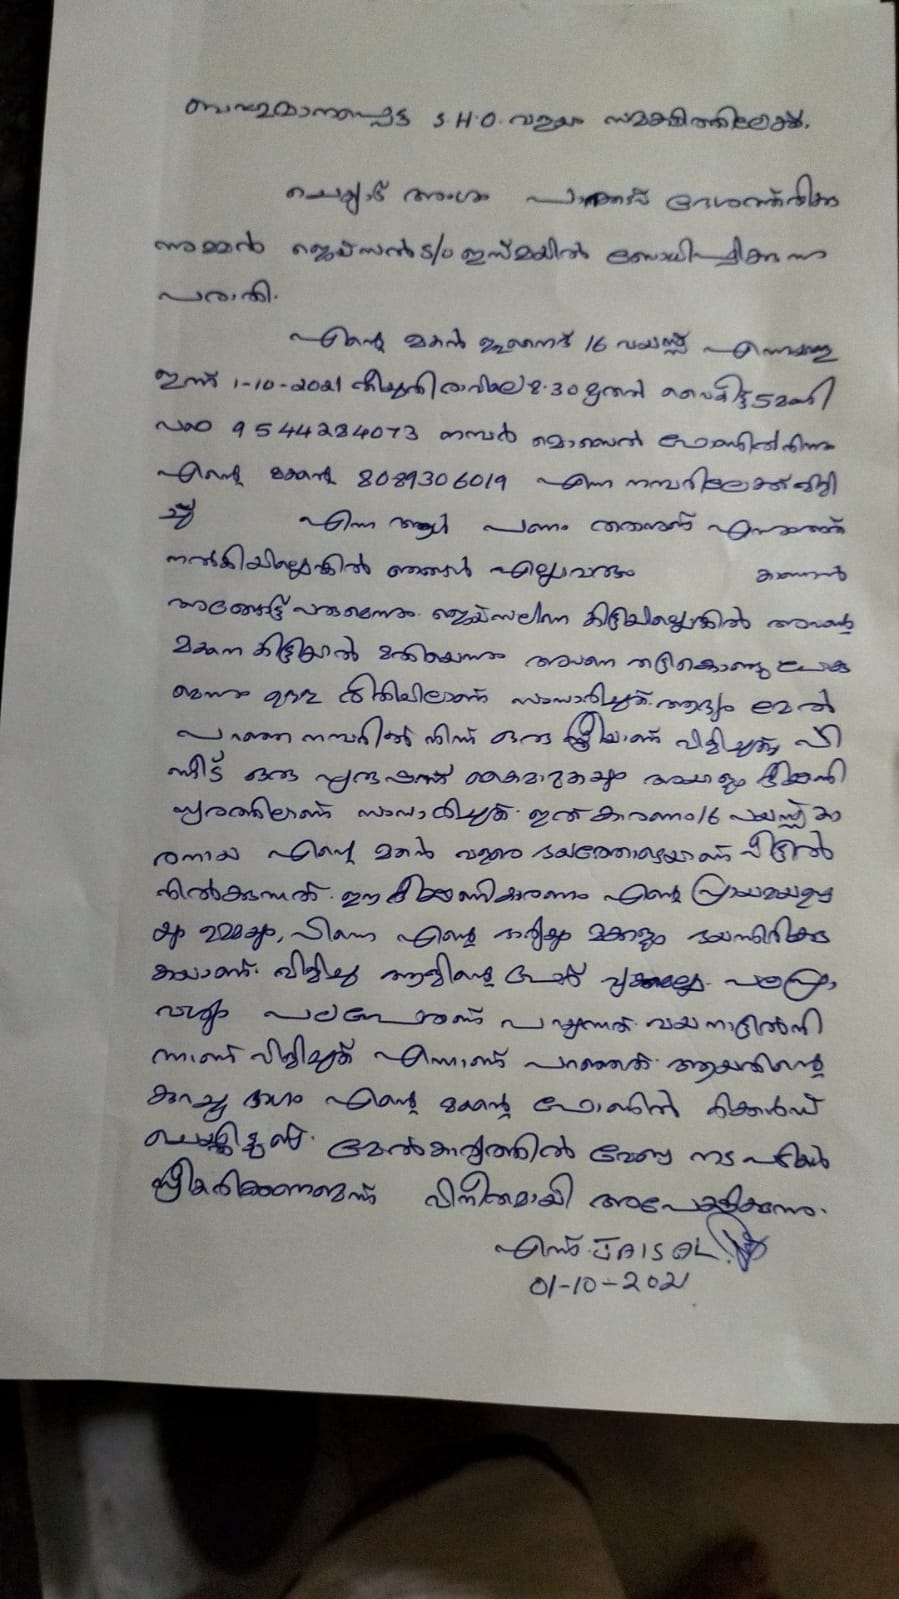 ബഹുമാനപ്പെട്ട S.H.O. വളയം സമക്ഷത്തിലേക്ക്.
ചെക്യാട് അംശം പാറക്കടവ് ദേശത്ത്
ജെയ്സൽ S/o ഇസ്മയിൽ ബോധിപ്പിക്കുന്ന
പരാതി.
എന്റെ മകൻ 16 വയസ്സ് എന്നയാളെ
ഇന്ന് 1-10-2021 തീയ്യതി രാവിലെ 8.30 മുതൽ വൈകിട്ട് 5 മണി
വരെ 9544284073 നമ്പർ മൊബൈൽ ഫോണിൽ നിന്നും
എന്റെ മകന്റെ 8089306019 എന്ന നമ്പറിലേക്ക് വിളി
ച്ച് എന്ന ആൾ പണം തരാനുണ്ട് എന്നും അത്
നൽകിയില്ലെങ്കിൽ ഞങ്ങൾ എല്ലാവരും കാണാൻ
അങ്ങോട്ട് വരുമെന്നും ജെയ്സലിനെ കിട്ടിയില്ലെങ്കിൽ അവന്റെ
മകനെ കിട്ടിയാൽ മതിയെന്നും അവനെ തട്ടികൊണ്ടു പോകു
മെന്നും രീതിയിലാണ് സംസാരിച്ചത്. ആദ്യം മേൽ
പറഞ്ഞ നമ്പറിൽ നിന്ന് ഒരു സ്ത്രീയാണ് വിളിച്ചത്, പി
ന്നീട് ഒരു പുരുഷന് കൈമാറുകയും അയാളും ഭീഷണി
സ്വരത്തിലാണ് സംസാരിച്ചത്. ഇത് കാരണം 16 വയസ്സ് കാ
രനായ എന്റെ മകൻ വളരെ ഭയത്തോടെയാണ് വീട്ടിൽ
നിൽക്കുന്നത്. ഈ ഭീഷണി കാരണം എന്റെ പ്രായമായ ഉപ്പ
യും ഉമ്മയും, പിന്നെ എന്റെ ഭാര്യയും മക്കളും ഭയന്നിരിക്കു
കയാണ്. വിളിച്ച ആളിന്റെ പേര് വ്യക്തമല്ല. പല പ്രാ
വശ്യം പല പേരാണ് പറയുന്നത്. വയനാട്ടിൽ നി
ന്നാണ് വിളിച്ചത് എന്നാണ് പറഞ്ഞത്. ആയതിന്റെ
കുറച്ചു ഭാഗം എന്റെ മകന്റെ ഫോണിൽ റിക്കാർഡ്
ചെയ്തിട്ടുണ്ട്. മേൽകാര്യത്തിൽ വേണ്ട നടപടികൾ
സ്വീകരിക്കണമെന്ന് വിനീതമായി അപേക്ഷിക്കുന്നു.
എന്ന്. JAISAL
01-10-2021